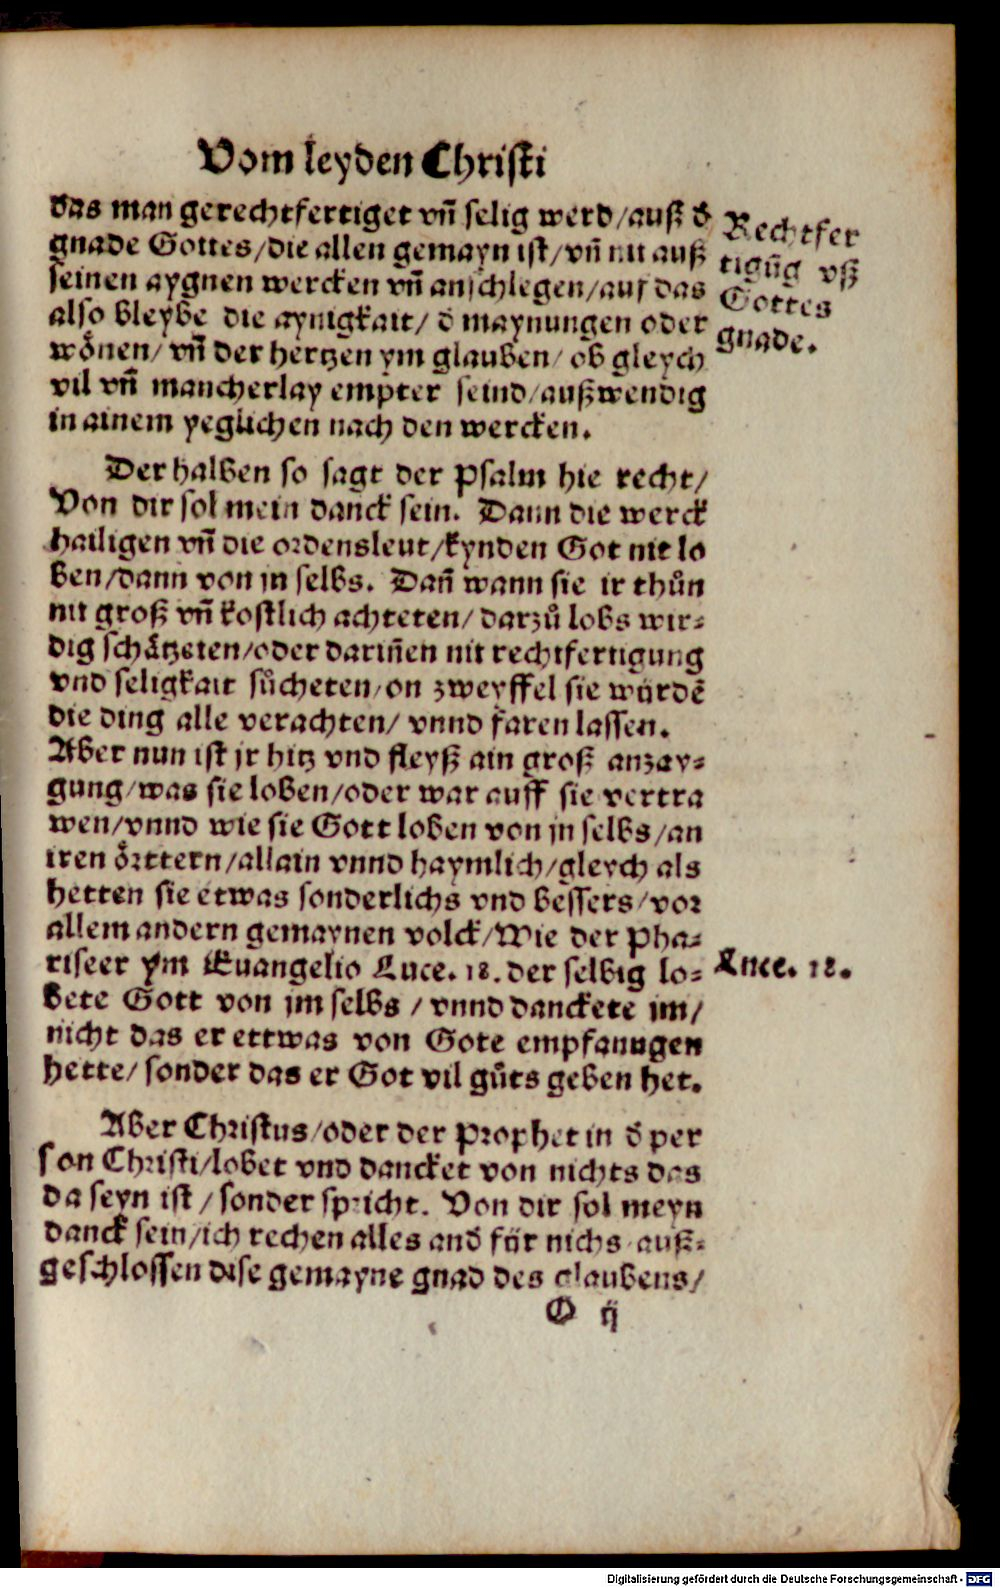 Vom leyden Christi
das man gerechtfertiget vñ selig werd/auß d̄
gnade Gottes/die allen gemayn ist/vñ nit auß
seinen aygnen wercken vñ anschlegen/auf das
also bleybe die aynigkait/ d̄ maynungen oder
woͤnen/ vñ der hertzen ym glauben/ ob gleych
vil vñ mancherlay empter seind/außwendig
in ainem yeglichen nach den wercken.
Rechtfer
tigūg vß
Gottes
gnade.
Der halben so sagt der Psalm hie recht/
Von dir sol mein danck sein. Dann die werck
hailigen vñ die ordensleut/kynden Got nit lo
ben/dann von jn selbs. Dañ wann sie ir thůn
nit groß vñ kostlich achteten/ darzů lobs wir-
dig schaͤtzeten/oder dariñen nit rechtfertigung
vnd seligkait sůcheten/on zweyffel sie würdē
die ding alle verachten/ vnnd faren lassen.
Aber nun ist jr hitz vnd fleyß ain groß anzay-
gung/was sie loben/oder war auff sie vertra
wen/vnnd wie sie Gott loben von jn selbs/an
iren oͤrttern/allain vnnd haymlich/gleych als
hetten sie etwas sonderlichs vnd bessers/vor
allem andern gemaynen volck/Wie der Pha-
riseer ym Euangelio Luce. 18. der selbig lo-
bete Gott von jm selbs / vnnd danckete im/
nicht das er ettwas von Gote empfanngen
hette/ sonder das er Got vil gůts geben het.
Luce. 18.
Aber Christus/oder der Prophet in d̄ per
son Christi/lobet vnd dancket von nichts das
da seyn ist / sonder spricht. Von dir sol meyn
danck sein/ich rechen alles and̄ für nichs auß-
geschlossen dise gemayne gnad des glaubens/
O ij
Digitalisierung gefördert durch die Deutsche Forschungsgemeinschaft - DFG